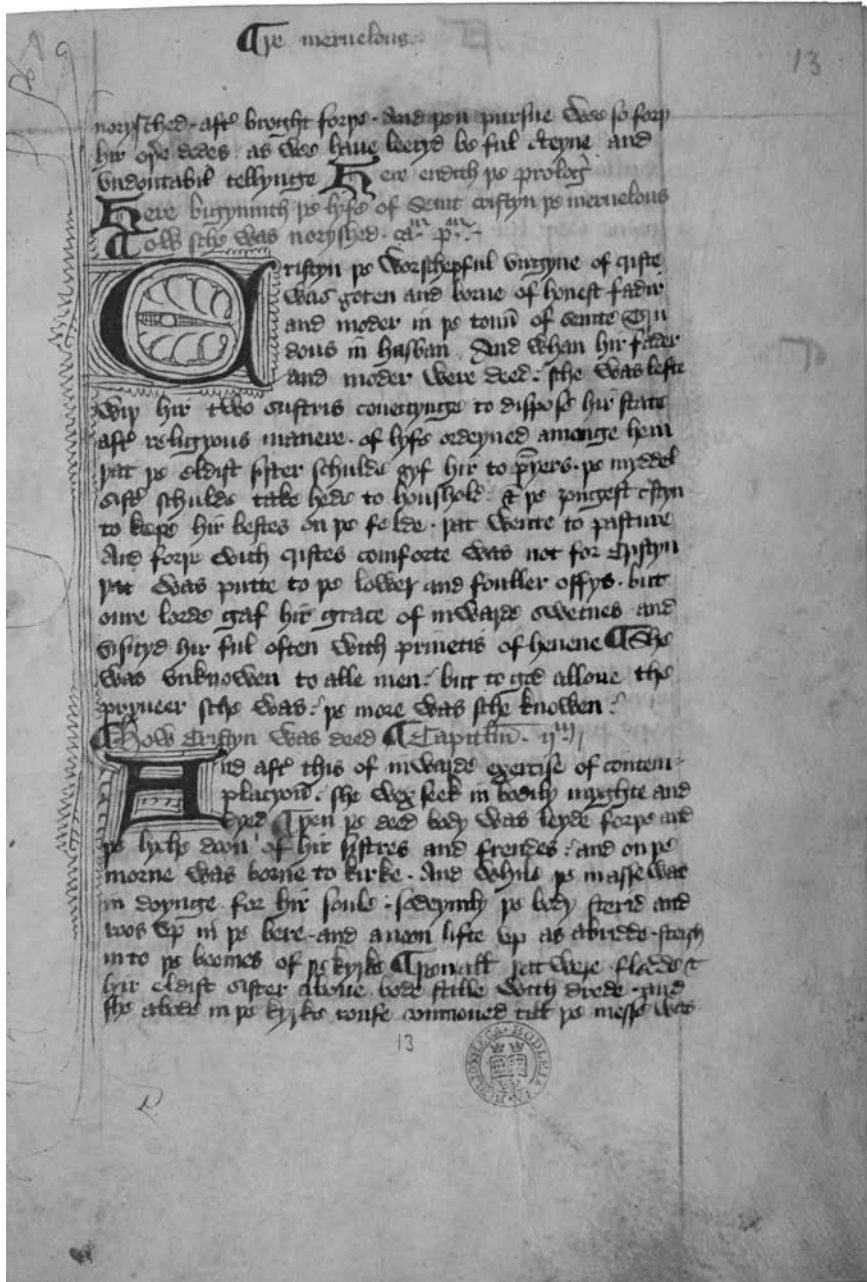 ¶ Þe meruelous.
13
norysched · aftir broght forþe · And þen pursue wee so forþ
hir oþere dedes as wee haue leeryd be ful certeyne and
vndoutabil tellynge Here endith þe prolog
Here bigynnith þe lyfe of Seint cristyn þe meruelous
¶ How sche was noryshed · cam pm
Cristyn þe worschepful virgyne of criste
was goten and borne of honest fadir
and moder in þe toun of Seinte Tru
dous in hasban And whan hir fader
and moder were deed : sche was lefte
wiþ hir two sustris coueitynge to dispose hir state
aftir religyous manere · of lyfe ordeyned amonge hem
þat þe eldist sister schulde gyf hir to prayers · þe myddel
sister schulde take hede to houshold & þe yingest cristyn
to kepe hir bestes on þe felde · þat wente to pasture
And forþe with cristes comforte was not for Cristyn
þat was putte to þe lower and fouller offys · but
oure lorde gaf hir grace of inwarde swetnes and
visityd hir ful often with priuetis of heuene ¶ She
was vnknowen to alle men : but to god allone the
pryueer sche was : þe more was sche knowen :
¶ How Cristyn was deed ¶ Capitulum · ijm
And aftir this of inwarde exercise of contem
placyoun : she wex seek in bodily myghte and
dyed ¶ Þen þe deed body was leyde forþe and
þe lyche doon of hir sistres and frendes : and on þe
morne was borne to kirke · And while þe masse was
in doynge for hir soule : sodeynly þe body sterid and
roos vp in þe bere · and anoon lifte vp as a bridde · steigh
into þe beemes of þe kyrke ¶ Þen alle þat were fledde &
hir eldist sister aboue bode stille with drede · and
she abode in þe kyrke roufe vnmoued til þe messe was
13
BIBLIOTHECA · BODLEIANA